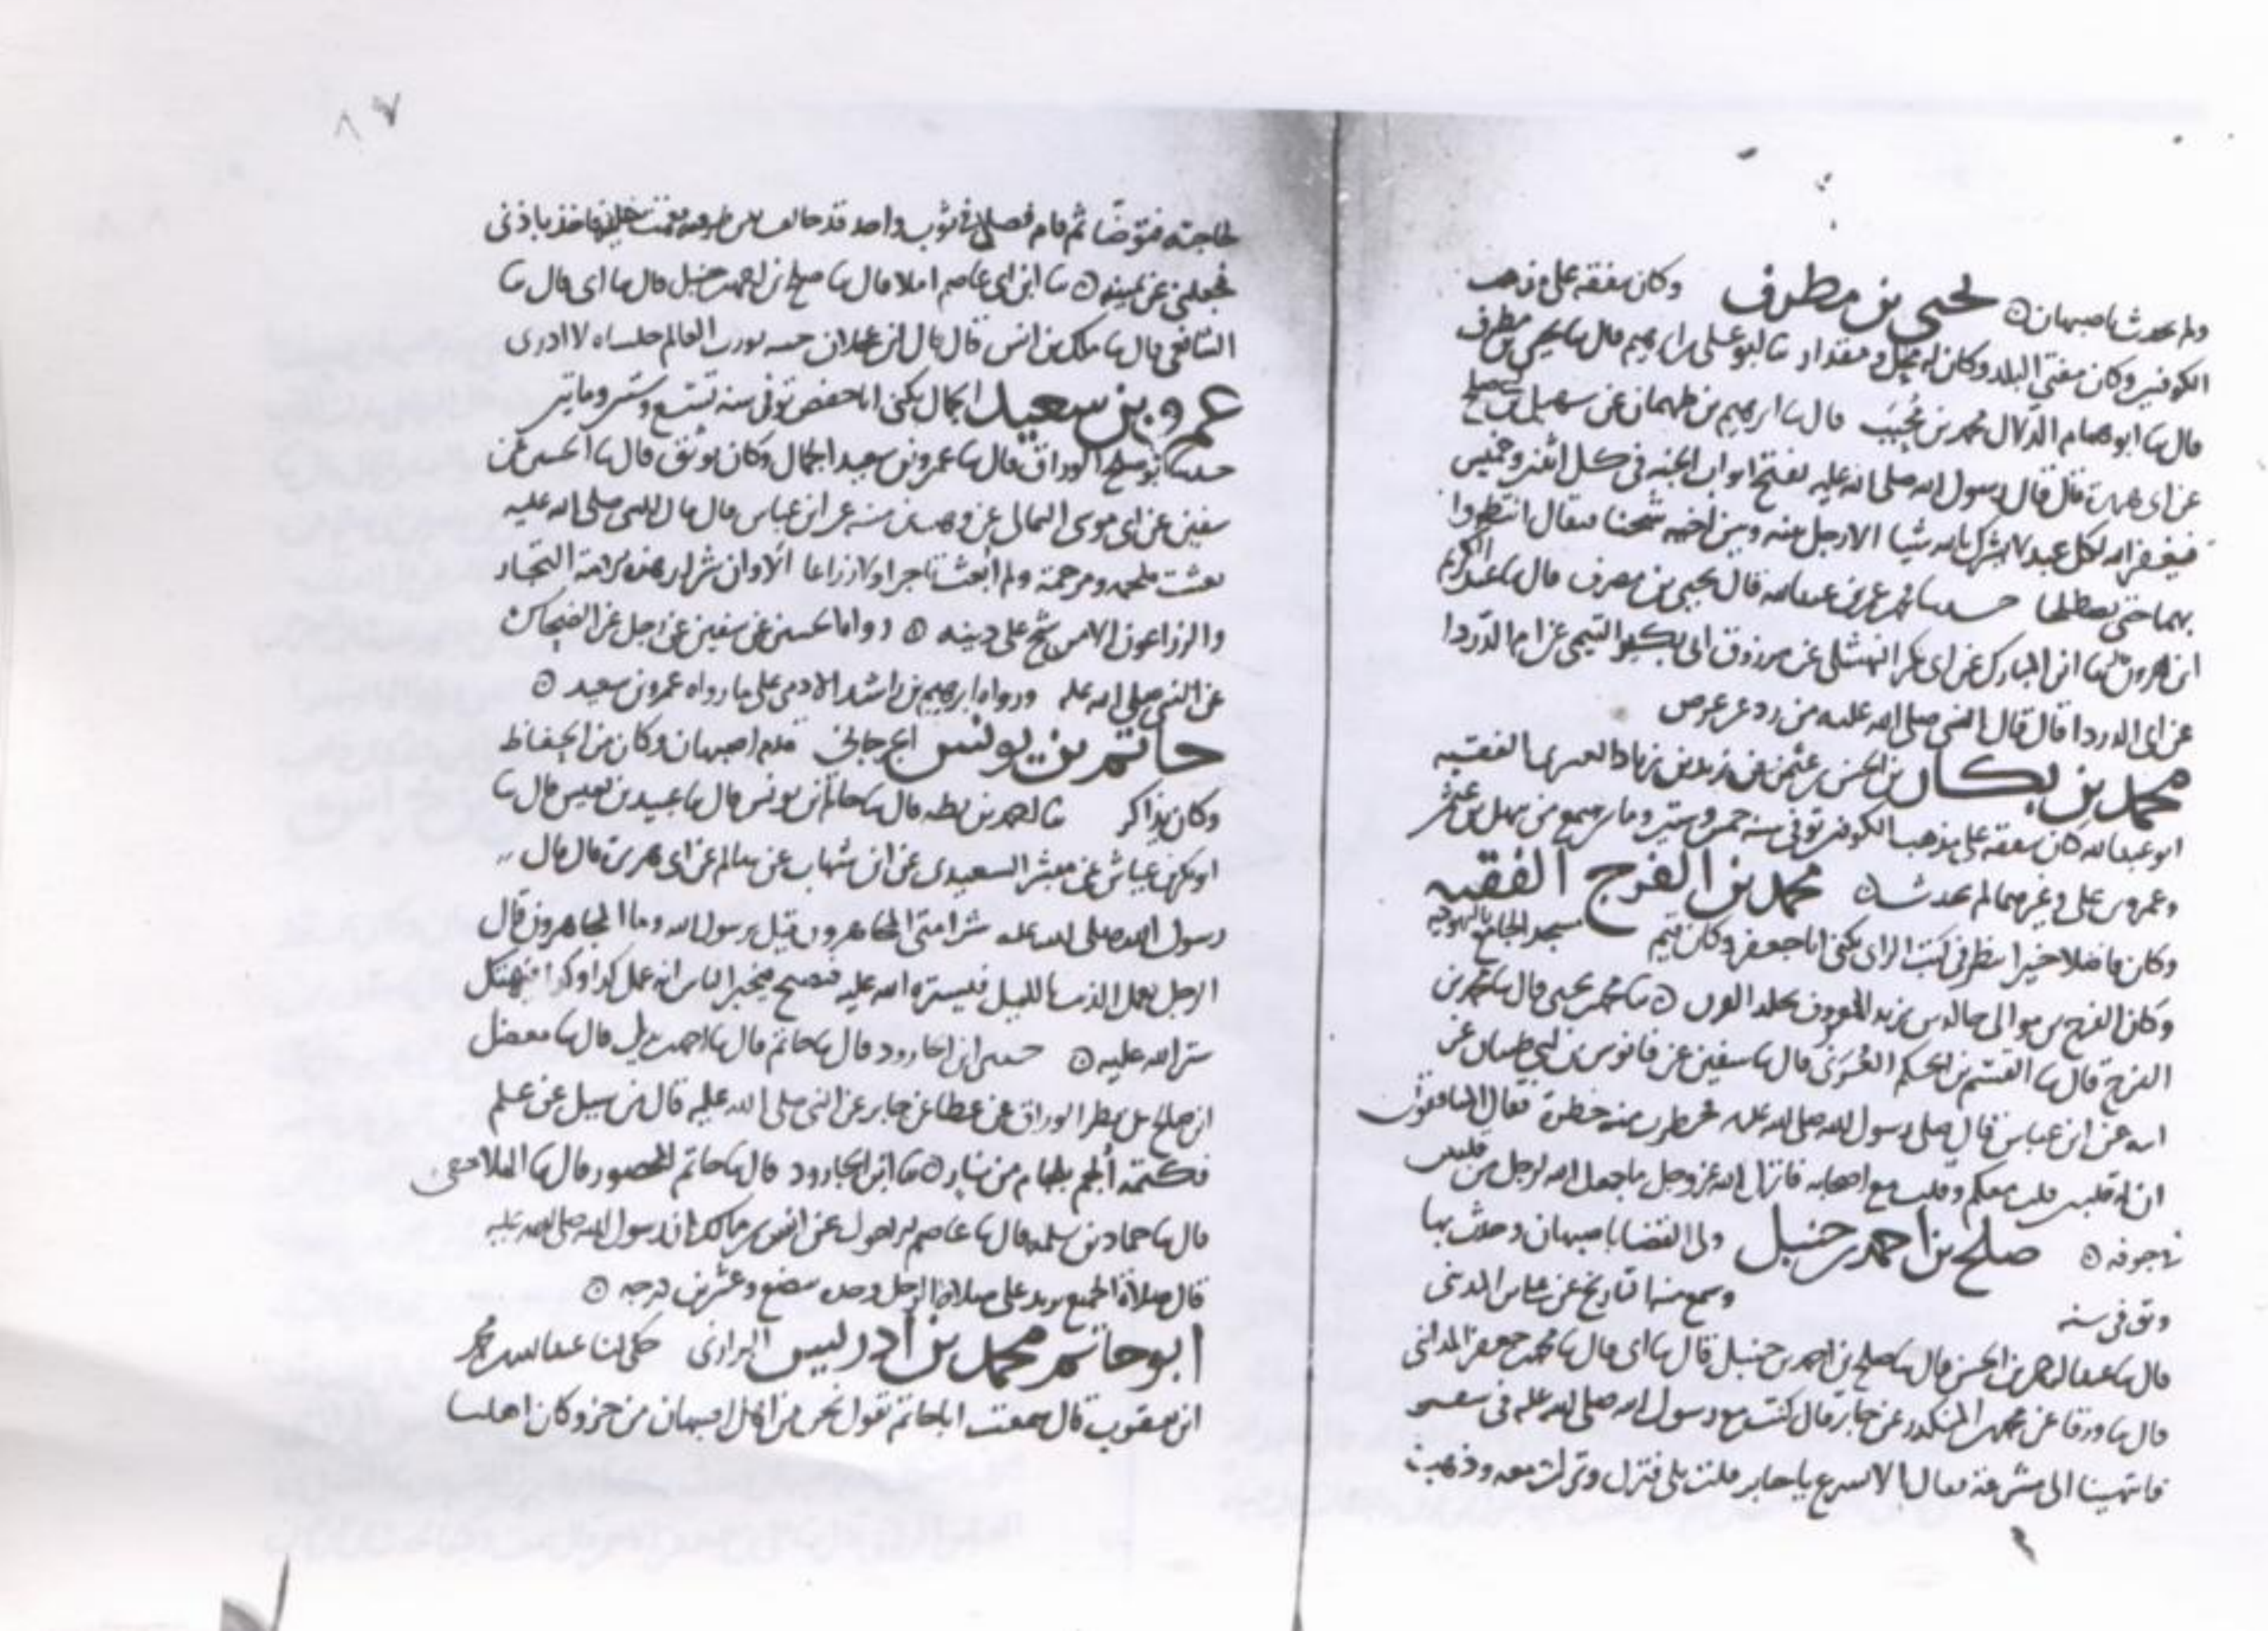 ولم يحدث باصبهان ۞ يحيى بن مطرف وكان يتفقه على مذهب
الكوفيين وكان مفتي البلد وكان له محل ومقدار ثنا ابو علي بن ابرهيم قال ثنا يحيى بن مطرف
قال ثنا ابو همام الدلال محمد بن محبب قال ثنا ابرهيم بن طهمان عن سهيل بن ابي صلح
عن ابي هريرة قال قال رسول الله صلى الله عليه تفتح ابواب الجنة في كل اثنين وخميس
فيغفر الله لكل عبد لا يشرك بالله شيا الا رجل بينه وبين اخيه شحنا فيقال انتظروا
بهما حتى يصطلحا حدثنا محمد بن عبدالله قال يحيى بن مطرف قال ثنا عبد الكريم
ابن هرون ثنا ابن المبارك عن ابي بكر النهشلي عن مرزوق ابي بكير التيمي عن ام الدردا
عن ابي الدردا قال قال النبي صلى الله عليه من رد عن عرض
محمد بن بكار بن الحسن بن عثمن بن زيد بن زياد الفقيه
ابو عبدالله كان يتفقه على مذهب الكوفيين توفي سنة خمس وستين ومايتين سمع من سهل بن عثمن
وعمرو بن علي وغيرهما لم يحدث ۞ محمد بن الفرج الفقيه
وكان فاضلا خيرا ينظر في كتب الراي يكنى ابا جعفر وكان قيم مسجد الجامع باليهودية
وكان الفرج من موالي خالد بن يزيد المعروف ۞ ثنا محمد بن يحيى قال ثنا محمد بن
الفرج قال ثنا القسم بن الحكم العرني قال ثنا سفين عن قابوس بن ابي ظبيان عن
ابيه عن ابن عباس قال صلى رسول الله صلى الله عليه فخطرت منه خطرة فقال المنافقون
ان له قلبين قلب معكم وقلب مع اصحابه فانزل الله عز وجل ما جعل الله لرجل من قلبين
في جوفه ۞ صلح بن احمد بن حنبل ولي القضا باصبهان وحدث بها
وتوفي سنة وسمع منه التاريخ عن عباس المدني
قال ثنا عبدالرحمن بن الحسن قال ثنا صلح بن احمد بن حنبل قال ثنا ابي قال ثنا محمد بن جعفر المدائني
قال ثنا ورقا عن محمد بن المنكدر عن جابر قال كنت مع رسول الله صلى الله عليه في سفر
فانتهينا الى مشرعة فقال الا تشرع يا جابر قلت بلى فنزل ونزلت معه وذهب
لحاجته فتوضا ثم قام فصلى في ثوب واحد قد خالف بين طرفيه فقمت خلفه فاخذ باذني
فجعلني عن يمينه ۞ ثنا ابن ابي عاصم املا قال ثنا صلح بن احمد بن حنبل قال ثنا ابي قال ثنا
الشافعي قال ثنا ملك بن انس قال قال ابن عجلان العالم جلساه لا ادري
عمرو بن سعيد الجمال يكنى ابا حفص توفي سنة تسع وستين ومايتين
حدثنا ابو صلح الوراق قال ثنا عمرو بن سعيد الجمال وكان يوثق قال ثنا الحسين عن
سفين عن ابي موسى اليماني عن وهب بن منبه عن ابن عباس قال قال النبي صلى الله عليه
بعثت ملحمة ومرحمة ولم ابعث تاجرا ولا زراعا الا وان شرار هذه الامة التجار
والزراعون الا من شح على دينه ۞ رواه الحسين عن سفين عن رجل عن الضحاك
عن النبي صلى الله عليه ورواه ابرهيم بن راشد الادمي على ما رواه عمرو بن سعيد ۞
حاتم بن يونس الجرجاني قدم اصبهان وكان من الحفاظ
وكان يذاكر ثنا احمد بن بطة قال ثنا حاتم بن يونس قال ثنا عبيد بن يعيش قال ثنا
ابو بكر بن عياش عن مبشر السعيدي عن ابن شهاب عن سالم عن ابي هريرة قال قال
رسول الله صلى الله عليه شر امتي المجاهرون قيل يرسول الله وما المجاهرون قال
الرجل يعمل الذنب بالليل فيستره الله عليه فيصبح فيخبر الناس انه عمل كذا وكذا فيهتك
ستر الله عليه ۞ حدثنا ابن الجارود قال ثنا حاتم قال ثنا احمد قال ثنا مفضل
ابن صلح عن مطر الوراق عن عطا عن جابر عن النبي صلى الله عليه قال من سيل عن علم
فكتمه الجم بلجام من نار ۞ ثنا ابن الجارود قال ثنا حاتم قال ثنا
قال ثنا حماد بن سلمة قال ثنا عاصم الاحول عن انس بن مالك ان رسول الله صلى الله عليه
قال صلاة الجميع تزيد على صلاة الرجل وحده بضع وعشرين درجة ۞
ابو حاتم محمد بن ادريس الرازي حكى لنا عبدالله بن محمد
ابن يعقوب قال سمعت ابا حاتم يقول نحن من اهل اصبهان من جز وكان اهلنا